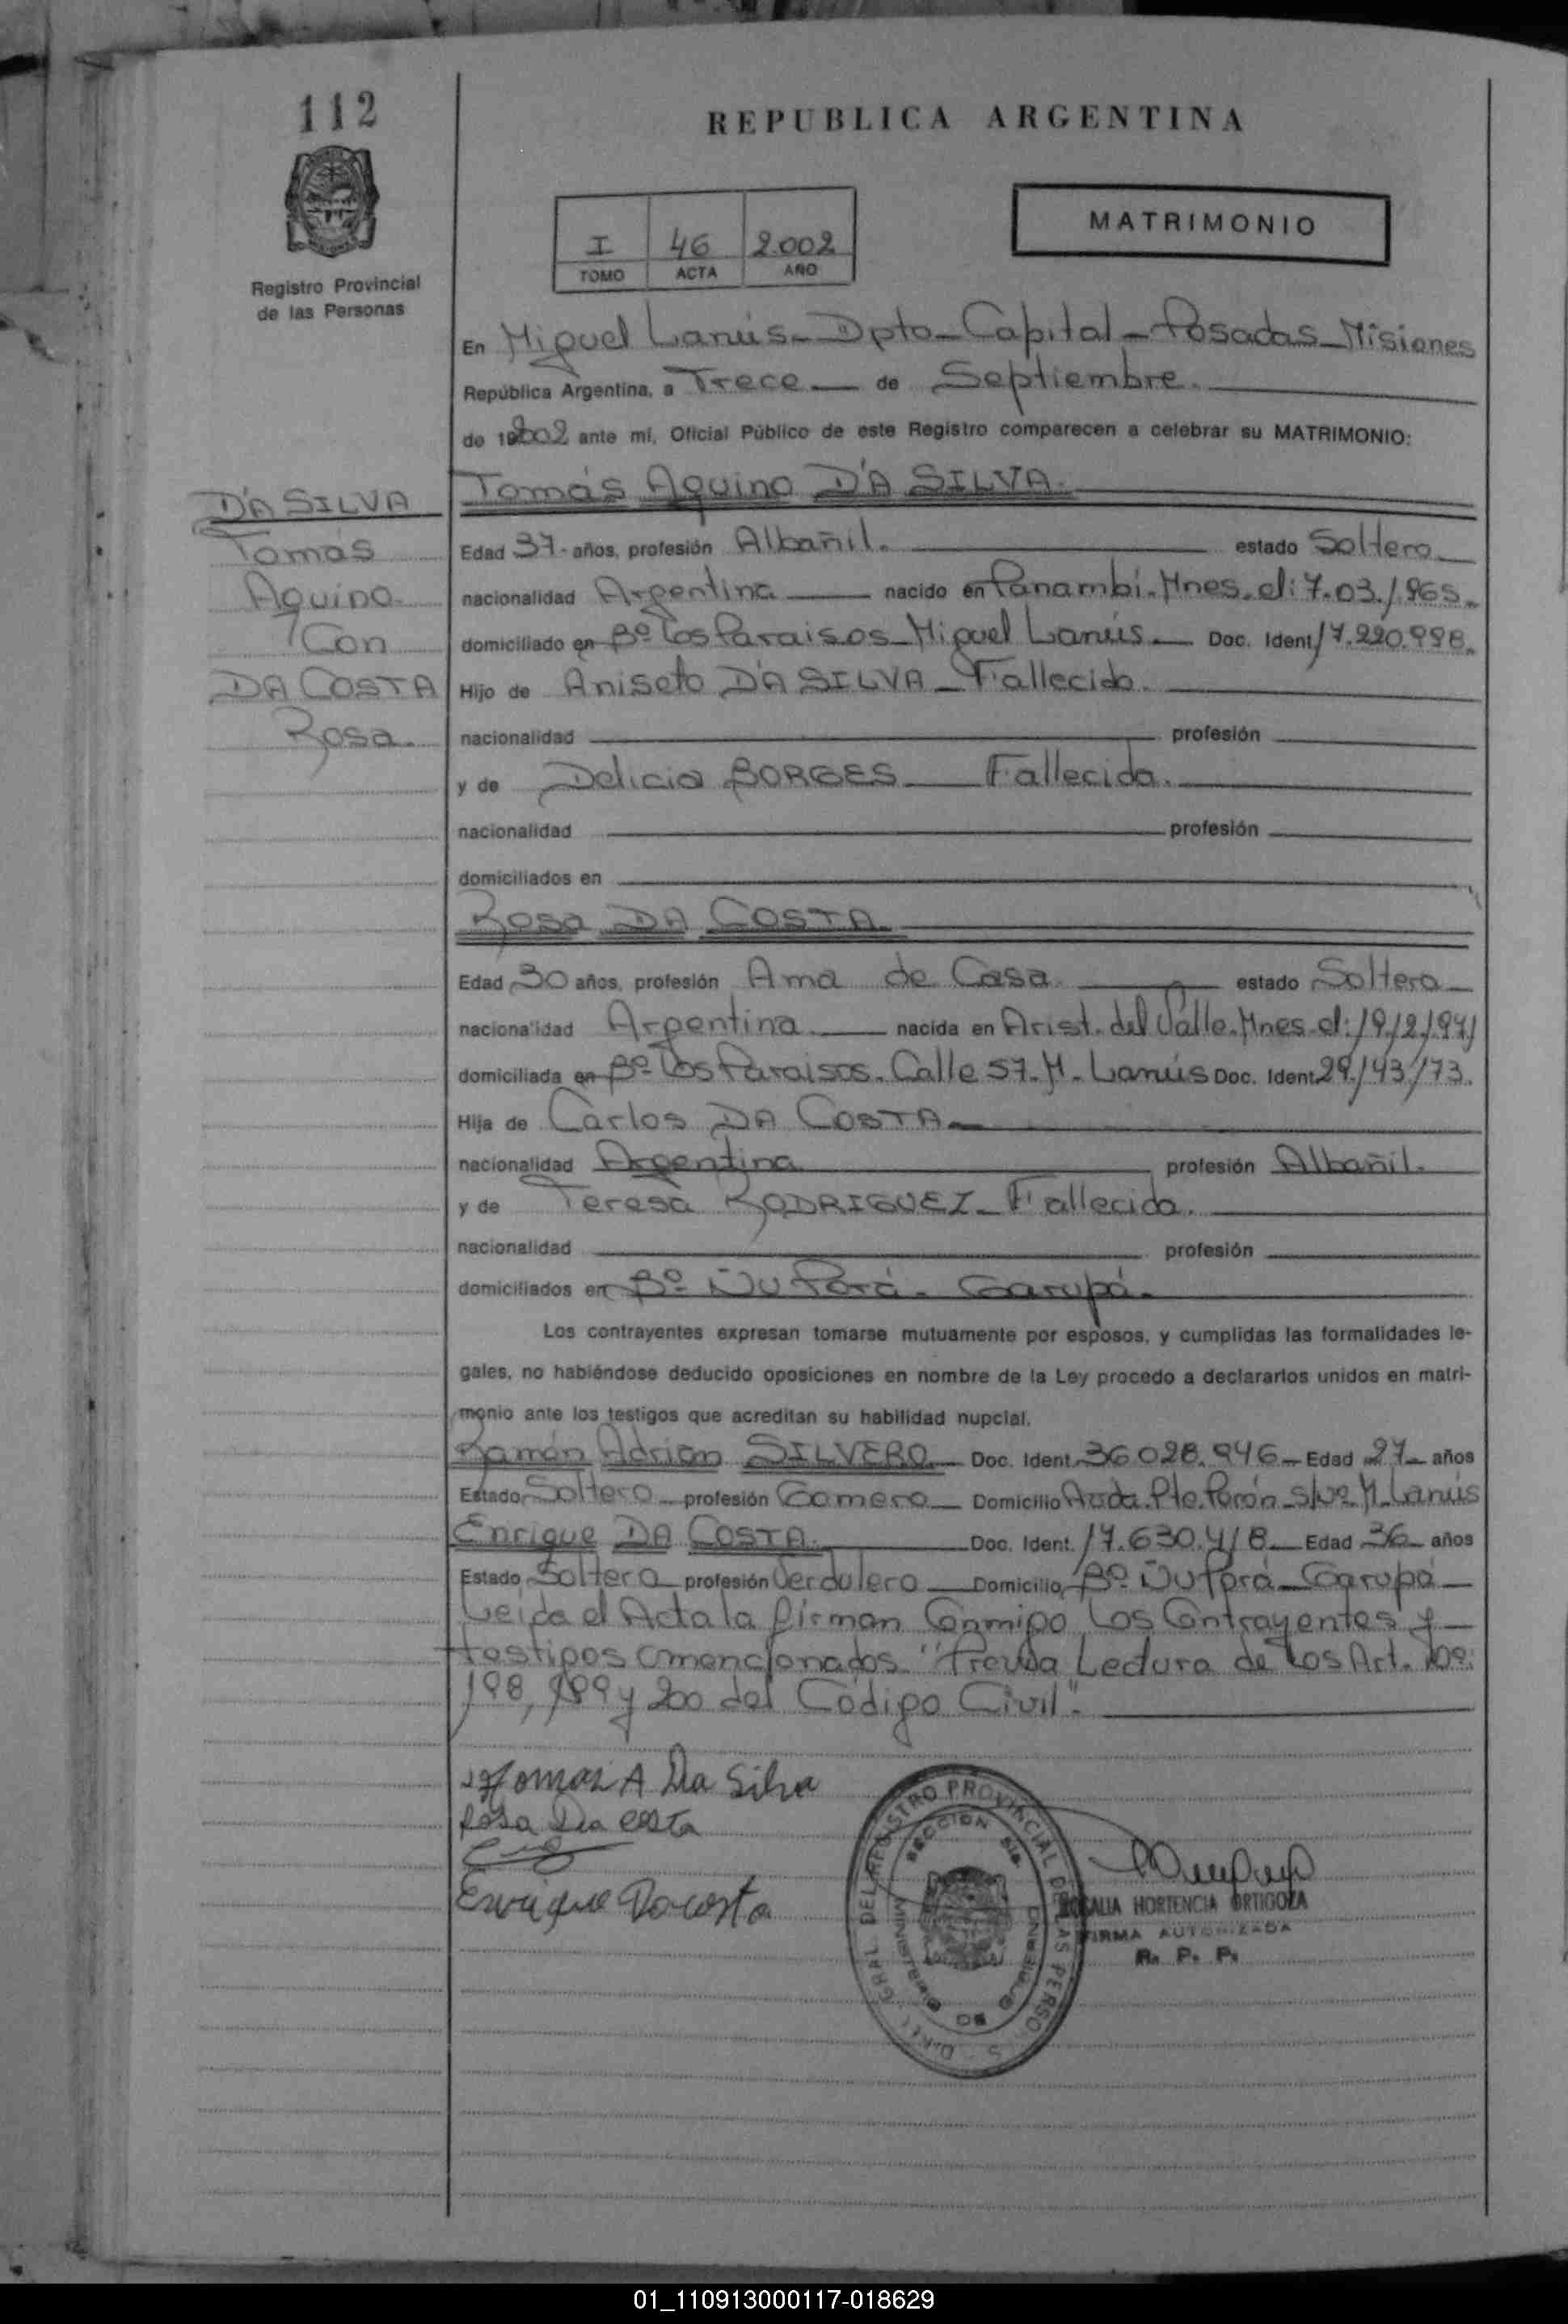 112
REPUBLICA ARGENTINA
MATRIMONIO
I 46 2.002
TOMO ACTA AÑO
Registro Provincial
de las Personas
En Miguel Lanús - Dpto - Capital - Posadas - Misiones
República Argentina, a Trece de Septiembre.
de 2002 ante mí, Oficial Público de este Registro comparecen a celebrar su MATRIMONIO:
D'A SILVA
Tomás
Aquino
Con
DA COSTA
Rosa.
Tomás Aquino D'A SILVA.
Edad 37 - años, profesión Albañil. estado Soltero
nacionalidad Argentina nacido en Panambí. Mnes. el: 7.03.1965.
domiciliado en Bº Los Paraisos - Miguel Lanús. Doc. Ident. 17.220.998.
Hijo de Aniseto D'A SILVA - Fallecido.
nacionalidad profesión
y de Delicia BORGES Fallecida.
nacionalidad profesión
domiciliados en
Rosa DA COSTA.
Edad 30 años, profesión Ama de Casa estado Soltera
nacionalidad Argentina. nacida en Arist. del Valle. Mnes. el: 19/2/971
domiciliada en Bº Los Paraisos. Calle 57. M. Lanús Doc. Ident. 29.143.173.
Hija de Carlos DA COSTA
nacionalidad Argentina profesión Albañil.
y de Teresa RODRIGUEZ - Fallecida.
nacionalidad profesión
domiciliados en Bº Ñu Porá. Garupá.
Los contrayentes expresan tomarse mutuamente por esposos, y cumplidas las formalidades le-
gales, no habiéndose deducido oposiciones en nombre de la Ley procedo a declararlos unidos en matri-
monio ante los testigos que acreditan su habilidad nupcial.
Ramón Adrian SILVERO. Doc. Ident. 36.028.946 - Edad 27 - años
Estado Soltero profesión Gomero Domicilio Avda. Pte. Perón - s/nº. M. Lanús
Enrique DA COSTA. Doc. Ident. 17.630.418. Edad 36 años
Estado Soltero profesión Verdulero Domicilio Bº Ñu Porá - Garupá
Leída el Acta la firman Conmigo Los Contrayentes y
testigos mencionados "Previa Lectura de Los Art. nº:
198, 199 y 200 del Código Civil".
Tomas A Da Silva
Rosa Da costa
Enrique Dacosta
REGISTRO PROVINCIAL DE LAS PERSO
ROSALIA HORTENCIA ORTIGOZA
FIRMA AUTORIZADA
R. P. P.
01_110913000117-018629